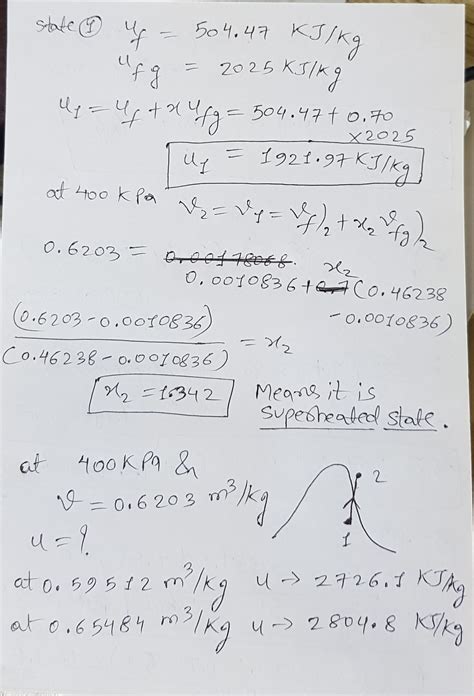 state ① u_f = 504.47 KJ/kg
u_fg = 2025 KJ/kg
u_1 = u_f + x u_fg = 504.47 + 0.70
× 2025
u_1 = 1921.97 KJ/kg
at 400 KPa v_2 = v_1 = v_f)_2 + x_2 v_fg)_2
0.6203 = 0.0010836 + x_2 (0.46238
- 0.0010836)
(0.6203 - 0.0010836) / (0.46238 - 0.0010836) = x_2
x_2 = 1.342 Means it is
superheated state.
at 400 KPa &
v = 0.6203 m³/kg
u = ?
2
1
at 0.59512 m³/kg u → 2726.1 KJ/kg
at 0.65484 m³/kg u → 2804.8 KJ/kg